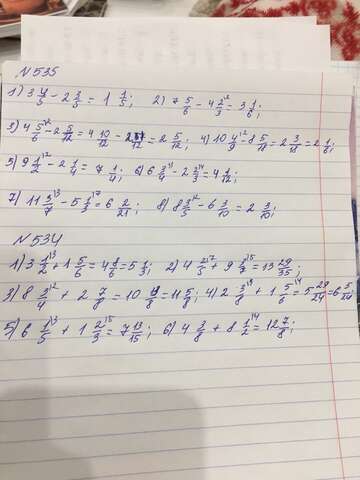 N535
1) 3 4/5 - 2 3/5 = 1 1/5; 2) 7 5/6 - 4 2/3\2 = 3 1/6;
3) 4 5/6\2 - 2 5/12 = 4 10/12 - 2 5/12 = 2 5/12; 4) 10 4/9\2 - 8 5/18 = 2 3/18 = 2 1/6;
5) 9 1/2\2 - 2 1/4 = 7 1/4; 6) 6 3/4\3 - 2 2/3\4 = 4 1/12;
7) 11 5/7\3 - 5 1/3\7 = 6 2/21; 8) 8 3/5\2 - 6 3/10 = 2 3/10;
N534
1) 3 1/2\3 + 1 5/6 = 4 8/6 = 5 1/3; 2) 4 2/5\7 + 9 1/7\5 = 13 29/35;
3) 8 3/4\2 + 2 7/8 = 10 13/8 = 11 5/8; 4) 2 3/8\3 + 1 5/6\4 = 5 29/24 = 6 5/24;
5) 6 1/5\3 + 1 2/3\5 = 7 13/15; 6) 4 3/8 + 8 1/2\4 = 12 7/8;